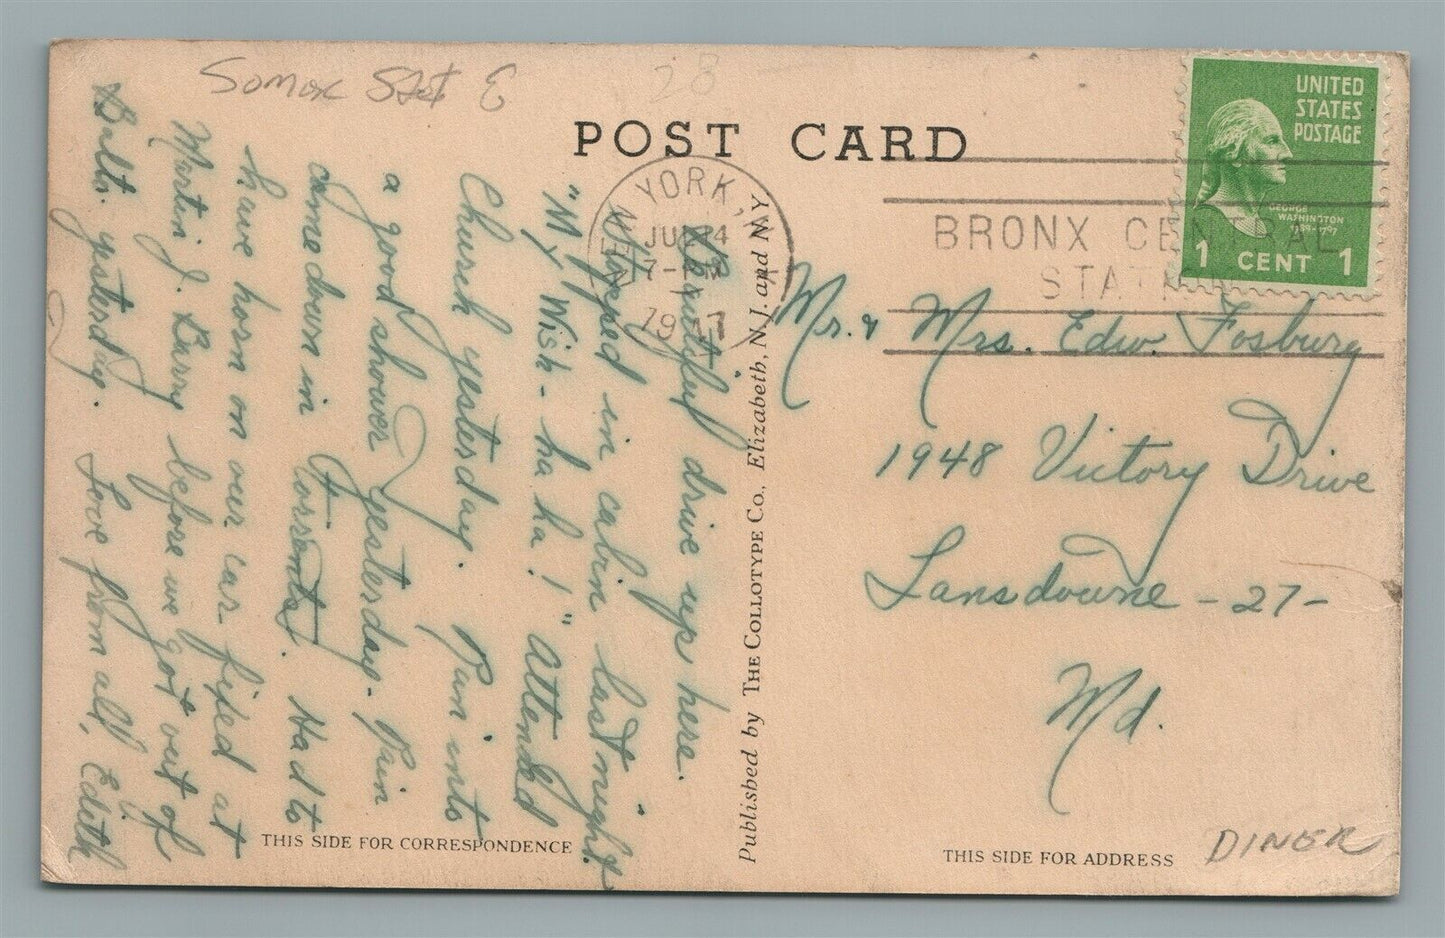 28
POST CARD
UNITED
STATES
POSTAGE
GEORGE
WASHINGTON
1732-1797
1 CENT 1
NEW YORK, N.Y.
JUL 14
7-PM
1947
BRONX CENTRAL
STAT
Beautiful drive up here.
Stopped in cabin last night.
"My Wish - ha ha!" Attended
Church yesterday. Run into
a good shower yesterday. Rain
came down in torrents. Had to
have horn on our car fixed at
Martin J. Barry before we got out of
Balto. yesterday. Love from all, Edith
THIS SIDE FOR CORRESPONDENCE
Published by THE COLLOTYPE Co., Elizabeth, N. J. and N.Y.
Mr. & Mrs. Edw. Fosburg
1948 Victory Drive
Lansdowne - 27 -
Md.
THIS SIDE FOR ADDRESS
DINER